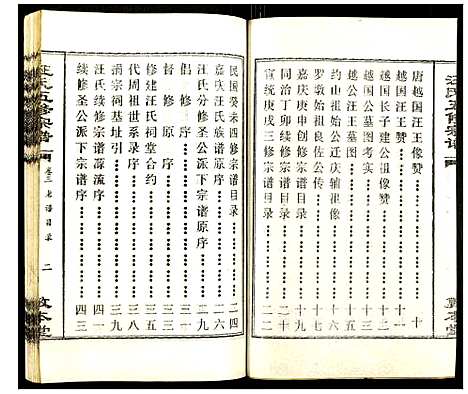 汪氏五修宗谱
敦本堂
唐越国汪王像赞 十
越国汪王赞 十一
越国长子建公祖像赞 十二
越国公墓图考实 十三
越国汪王墓图 十四
约山祖始公辽庆辅祖像 十五
罗敦始祖良佐公传 十七
嘉庆庚申修宗谱目录 十八
同治丁卯续修宗谱目录 二十
宣统庚戌三修宗谱目录 二二
民国癸未四修宗谱目录 二四
嘉庆汪氏族谱原序 二六
汪氏分修圣公派下宗谱原序 二九
倡修 三一
督修原序 三三
修建汪氏祠堂合约 三五
代周祖世系录序 三八
涓宗祠基址引 三九
汪氏续修宗谱源流序 四一
续修圣公派下宗谱序 四三
汪氏五修宗谱
卷三 老谱目录 二
敦本堂